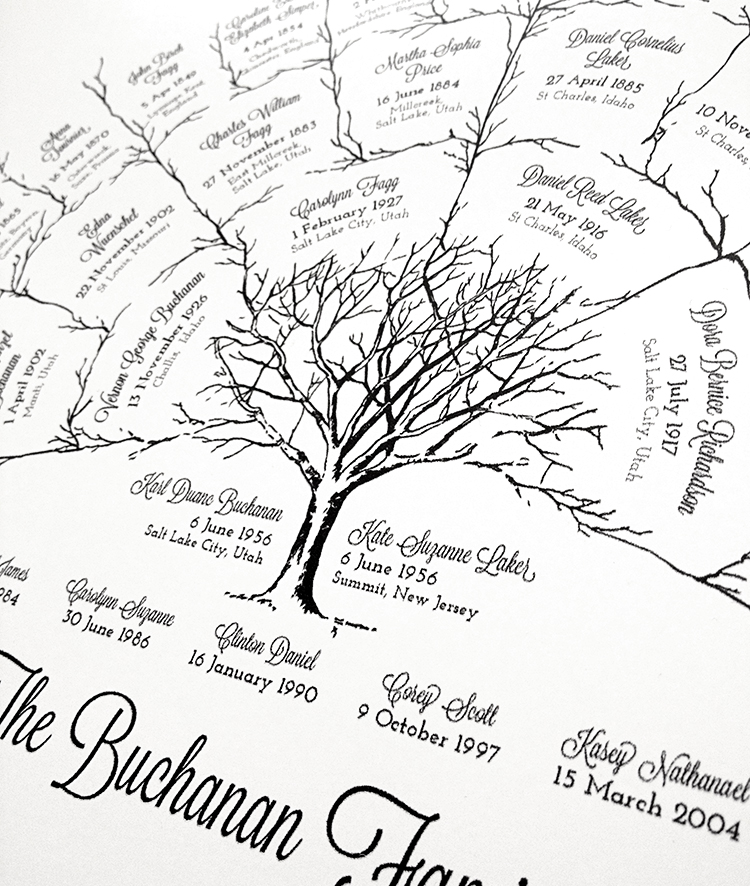 Caroline
Elizabeth Simper
4 Apr 1854
John Brook
Fagg
5 Apr 1840
England
Martha Sophia
Price
16 June 1884
Millcreek,
Salt Lake, Utah
Daniel Cornelius
Laker
27 April 1885
St Charles, Idaho
10 Nove
St Charles,
Anna
16 May 1870
Charles William
Fagg
27 November 1883
East Millcreek,
Salt Lake, Utah
Carolynn Fagg
1 February 1927
Salt Lake City, Utah
Daniel Reed Laker
21 May 1916
St Charles, Idaho
Edna
Waenschel
22 November 1902
St Louis, Missouri
Vernon George Buchanan
13 November 1926
Challis, Idaho
1 April 1902
Manti, Utah
Dora Bernice Richardson
27 July 1917
Salt Lake City, Utah
Karl Duane Buchanan
6 June 1956
Salt Lake City, Utah
Kate Suzanne Laker
6 June 1956
Summit, New Jersey
James
984
Carolynn Suzanne
30 June 1986
Clinton Daniel
16 January 1990
Corey Scott
9 October 1997
Kasey Nathanael
15 March 2004
The Buchanan Fami